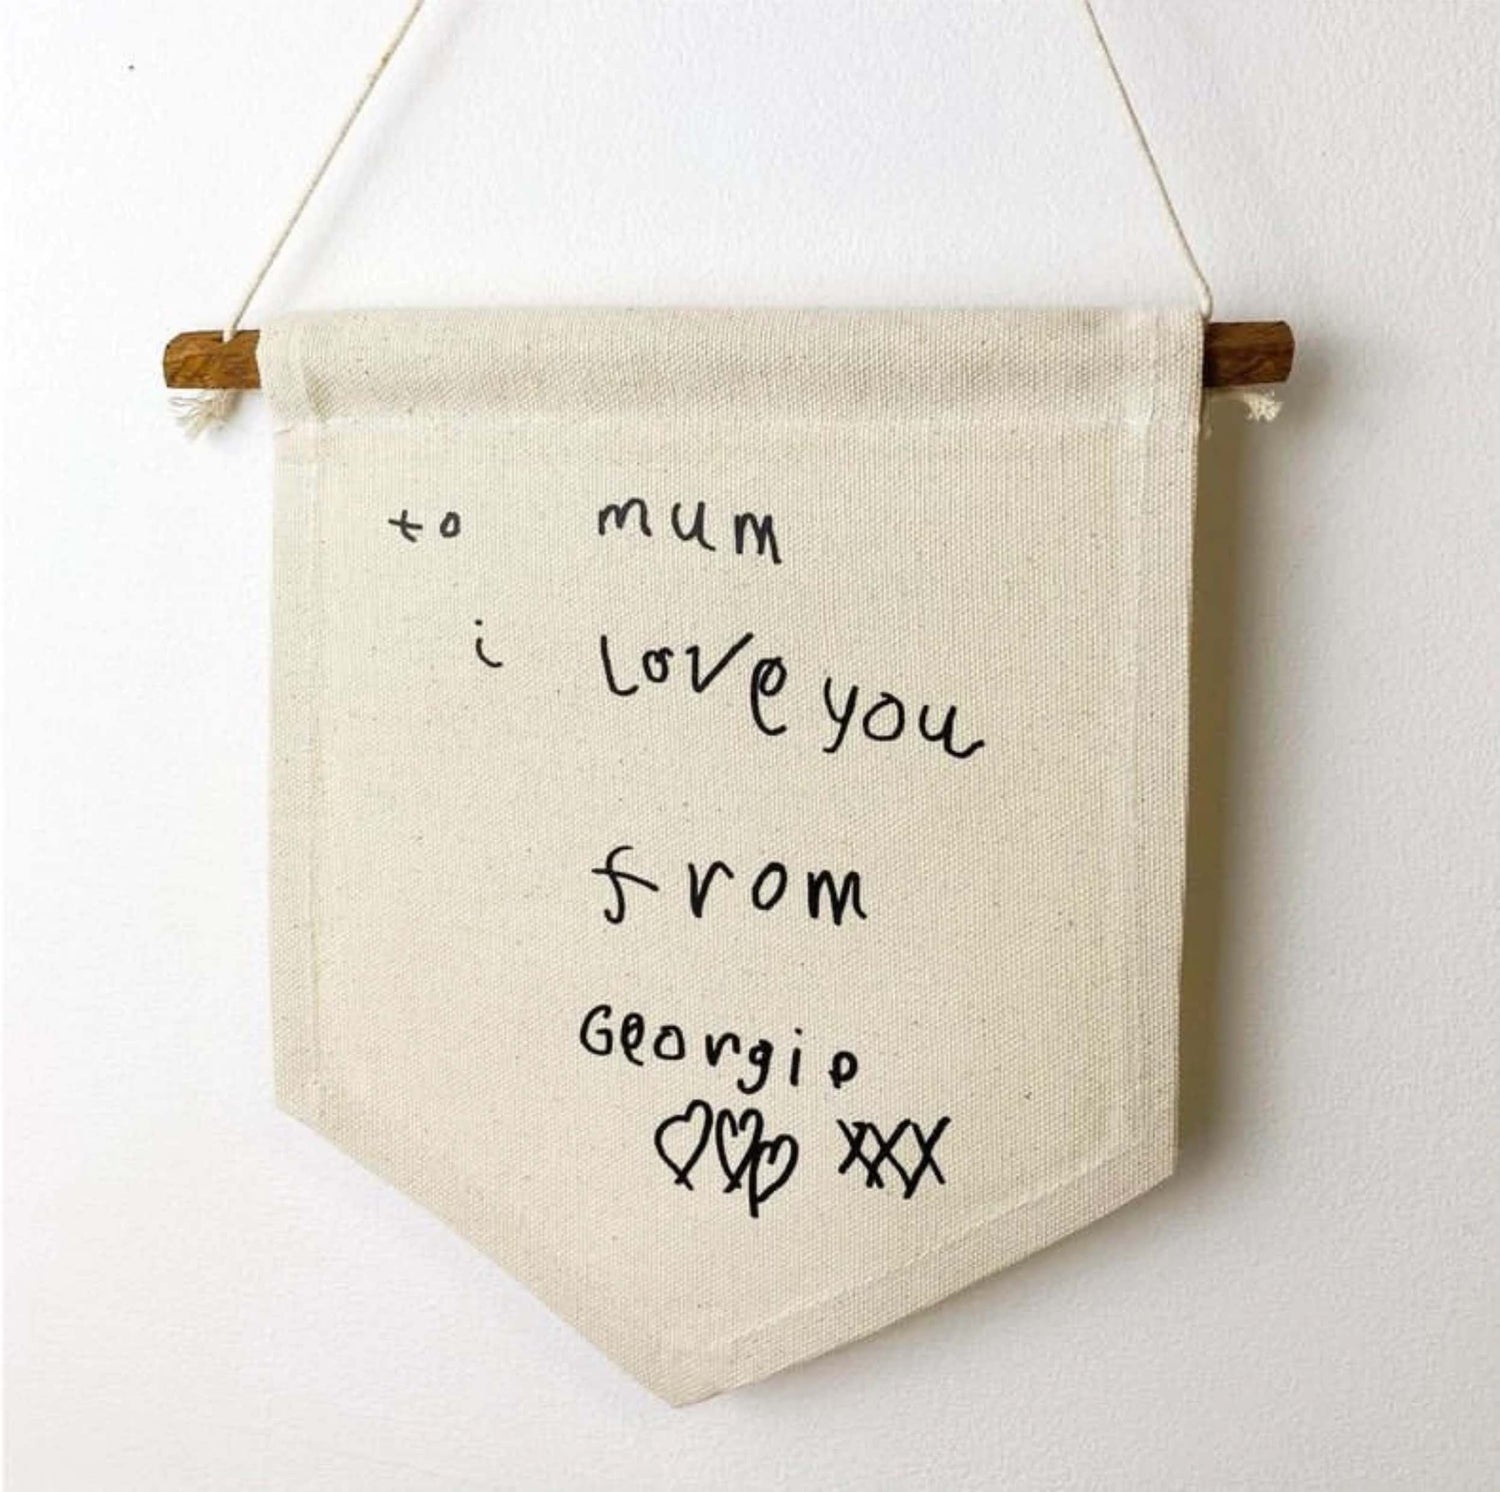 to mum
i Love you
from
Georgia
♡♡♡ xxx